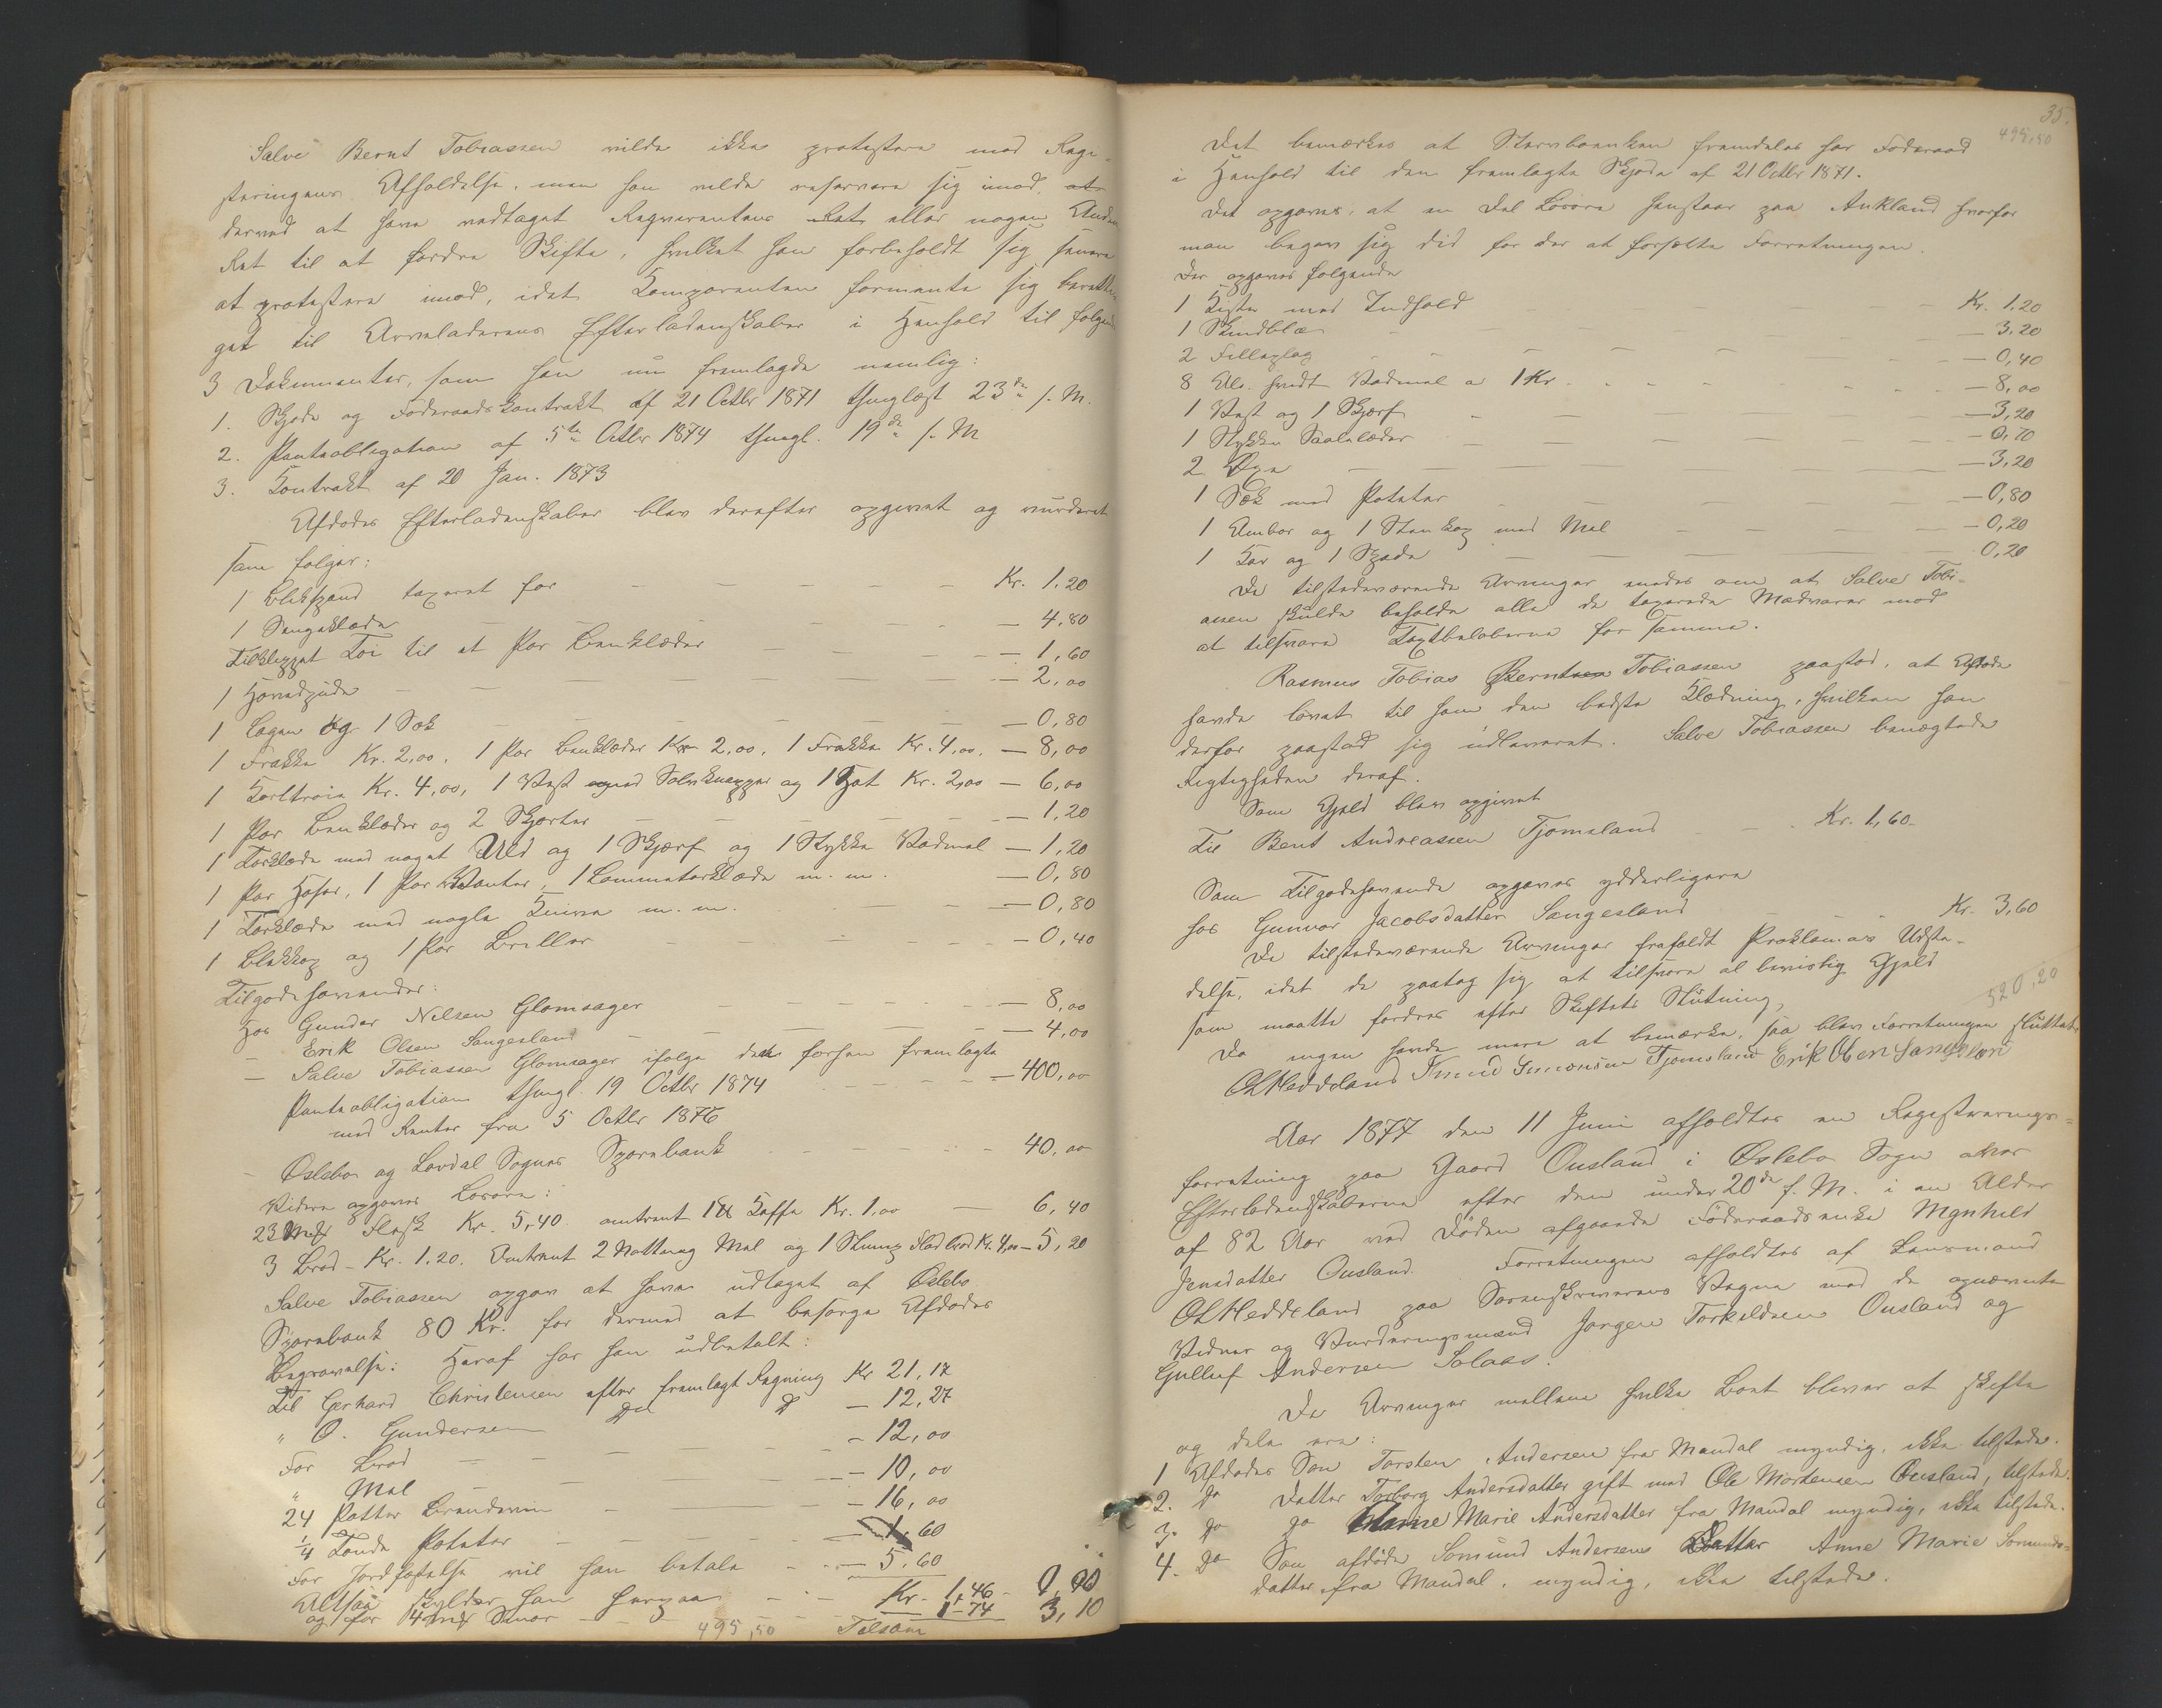 Salve Bernt Tobiassen vilde ikke protestere mod Regi-
steringens Afholdelse, men han vilde reservere sig imod, at
derved at have vedtaget Reqvirentens Ret eller nogen Anden
Ret til at fordre Skifte, hvilket han forbeholdt sig senere
at protestere imod, idet Komparenten formente sig beretti-
get til Arveladerens Efterladenskaber i Henhold til følgende
3 Dokumenter, som han nu fremlagde nemlig:
1. Skjøde og Føderaadskontrakt af 21 Octbr 1871 thinglæst 23de s. M.
2. Panteobligation af 5te Octbr 1874 thingl. 19de s. M
3. Kontrakt af 20 Jan. 1873
Afdødes Efterladenskaber blev derefter opgivet og vurderet
som følger:
1 Blikspand taxeret for Kr. 1,20
1 Sengeklæde 4,80
Tilklippet Tøi til et Par Benklæder 1,60
1 Hovedpude 2,00
1 Lagen og 1 Sæk 0,80
1 Frakke Kr. 2,00, 1 Par Benklæder Kr 2,00, 1 Frakke Kr. 4,00, 8,00
1 Kortrøie Kr. 4,00, 1 Vest med Sølvknapper og 1 Hat Kr. 2,00 6,00
1 Par Benklæder og 2 Skjorter 1,20
1 Tørklæde med noget Uld og 1 Skjærf og 1 Stykke Vadmel 1,20
1 Par Hoser, 1 Par Vanter, 1 Lommetørklæde m. m. 0,80
1 Tørklæde med nogle Knive m. m. 0,80
1 Blekkop og 1 Par Briller 0,40
Tilgodehavender:
Hos Gunder Nilsen Glomsager 8,00
- Erik Olsen Sangesland 4,00
- Salve Tobiassen Glomsager ifølge den forhen fremlagte
Panteobligation thingl. 19 Octbr 1874 400,00
med Renter fra 5 Octbr 1876
Øslebø og Løvdal Sognes Sparebank 40,00
Videre opgaves Løsøre:
23 Mrk Flesk Kr. 5,40 omtrent 1 ℔ Kaffe Kr. 1,00 6,40
3 Brød - Kr. 1.20. Omtrent 2 Mel og 1 Slump Fladbrød Kr. 4,00 - 5,20
Salve Tobiassen opgav at have udtaget af Øslebø
Sparebank 80 Kr. for dermed at besørge Afdødes
Begravelse: Heraf har han udbetalt:
Til Gerhard Christensen efter fremlagt Regning Kr 21,17
" O. Gundersen do do - 12,27
For Brød - 12,00
" Mel - 10,00
24 Potter Brændevin - 16,00
1/4 Tønde Poteter 1,60
For Jordfæstelse vil han betale - 5,60
Altsaa skylder han herpaa Kr. 1,46
og for 4 Mrk Smør 1-74 3,10
495,50 Tilsam
35.
495,50
Det bemærkes at Stervboenken fremdeles har Føderaad
i Henhold til den fremlagte Skjøde af 21 Octbr 1871.
Det opgaves, at en Del Løsøre henstaar paa Aukland hvorfor
man begav sig did for der at forsætte Forretningen.
Der opgaves følgende
1 Kiste med Indhold Kr. 1,20
1 Skindblæ 3,20
2 Filleplag 0,40
8 Al. hvidt Vadmel a 1 Kr. 8,00
1 Vest og 1 Skjærf 3,20
1 Stykke Saalelæder 0,70
2 Øxe 3,20
1 Sæk med Poteter 0,80
1 Ambar og 1 Stenkop med Mel 0,20
1 Kar og 1 Spade 0,20
De tilstedeværende Arvinger enedes om at Salve Tobi-
assen skulde beholde alle de taxerede Madvarer mod
at tilsvare Taxtbeløberne for samme.
Rasmus Tobias Berntsen Tobiassen paastod, at Afdøde
havde lovet til ham den bedste Klædning, hvilken han
derfor paastod sig udleveret. Salve Tobiassen benægtede
Rigtigheden deraf.
Som Gjæld blev opgivet
Til Bent Andreassen Tjomsland Kr. 1,60.
Som Tilgodehavende opgaves ydderligere
hos Gunvor Jacobsdatter Sangesland Kr. 3,60
De tilstedeværende Arvinger frafaldt Proklamas Udste-
delse, idet de paatog sig at tilsvare al bevislig Gjæld
som maatte fordres efter Skiftets Slutning,
520,20
Da ingen havde mere at bemærke, saa blev Forretningen sluttet
OLHeddeland Knud Simonsen Tjomsland Erik Olsen Sangesland
Aar 1877 den 11 Juni afholdtes en Registrerings-
forretning paa Gaard Ousland i Øslebø Sogn over
Efterladenskaberne efter den under 20de f. M. i en Alder
af 82 Aar ved Døden afgaaede Føderaadsenke Magnhild
Jensdatter Ousland. Forretningen afholdtes af Lensmand
OLHeddeland paa Sorenskriverens Vegne med de opnævnte
Vidner og Vurderingsmænd Jørgen Torkeldsen Ousland og
Gulluf Andersen Solaas.
De Arvinger mellem hvilke Boet bliver at skifte
og dele ere:
1 Afdødes Søn Torsten Andersen fra Mandal myndig, ikke tilstede.
2. do Datter Torborg Andersdatter gift med Ole Mortensen Ousland, tilstede.
3. do do Marie Andersdatter fra Mandal myndig, ikke tilstede.
4. do Søn afdøde Somund Andersens Datter Anne Marie Somunds-
datter fra Mandal, myndig, ikke tilstede.